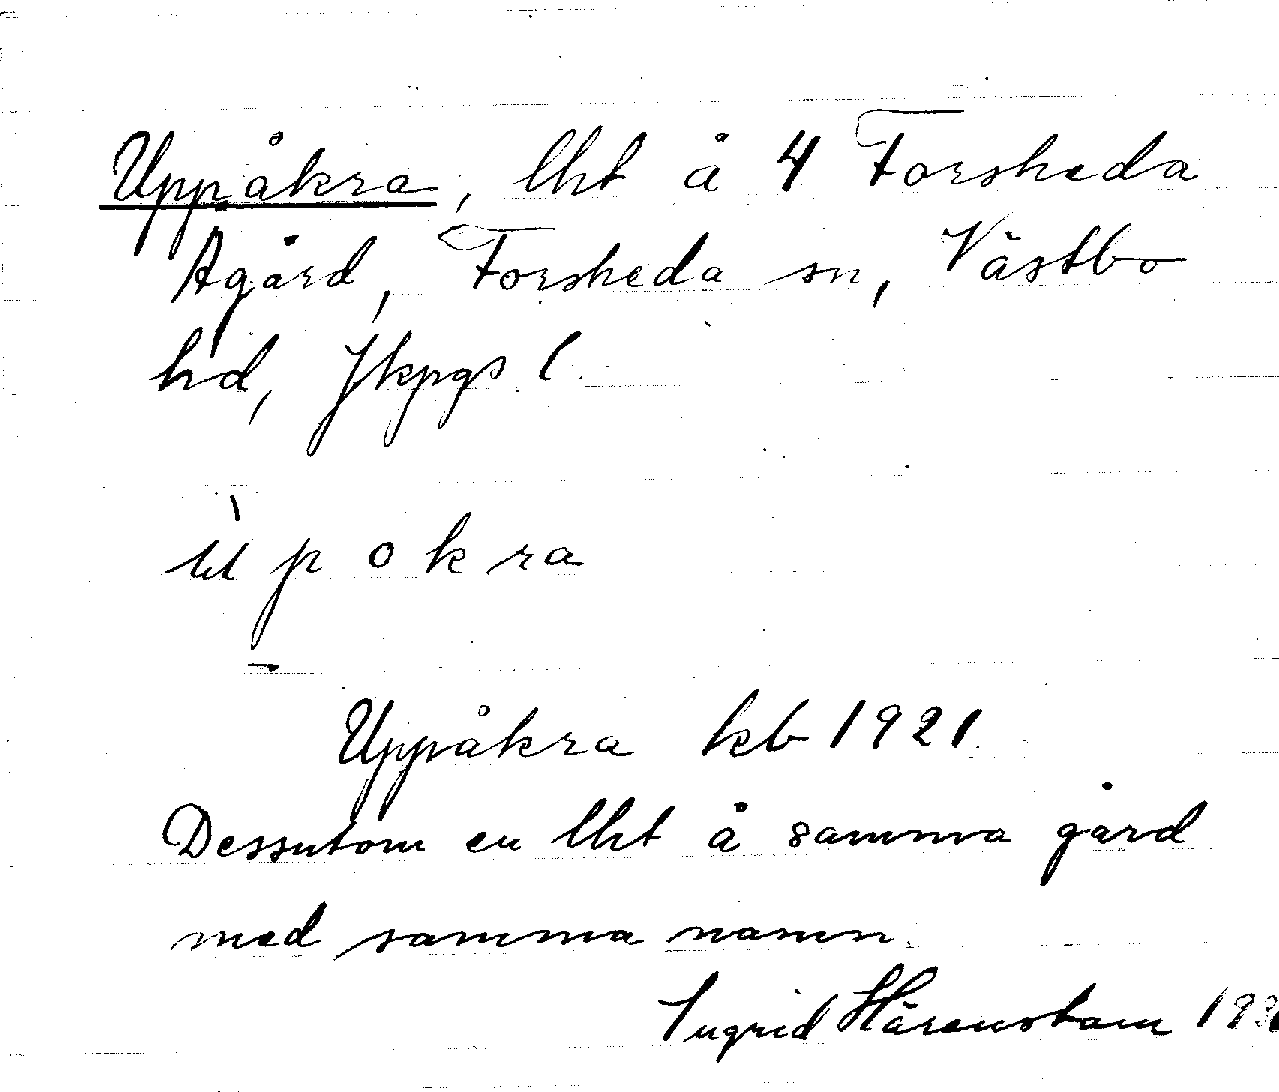 Uppåkra, lht å 4 Forsheda
Agård, Forsheda sn, Västbo
hd, Jkpgs l
ùpokra
Uppåkra kb 1921
Dessutom en lht å samma gård
med samma namn.
Ingrid Härenstam